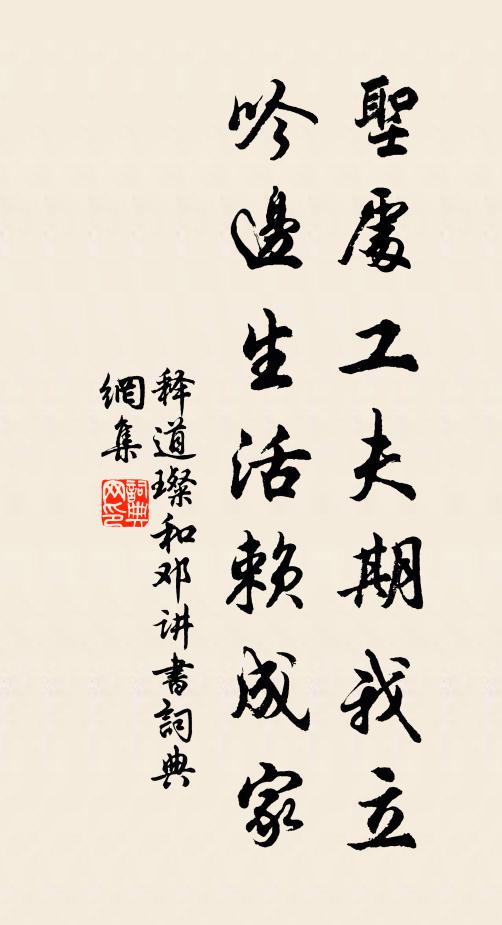 聖處工夫期我立
吟邊生活賴成家
释道璨和邓讲書詞典
網集
詞典網印